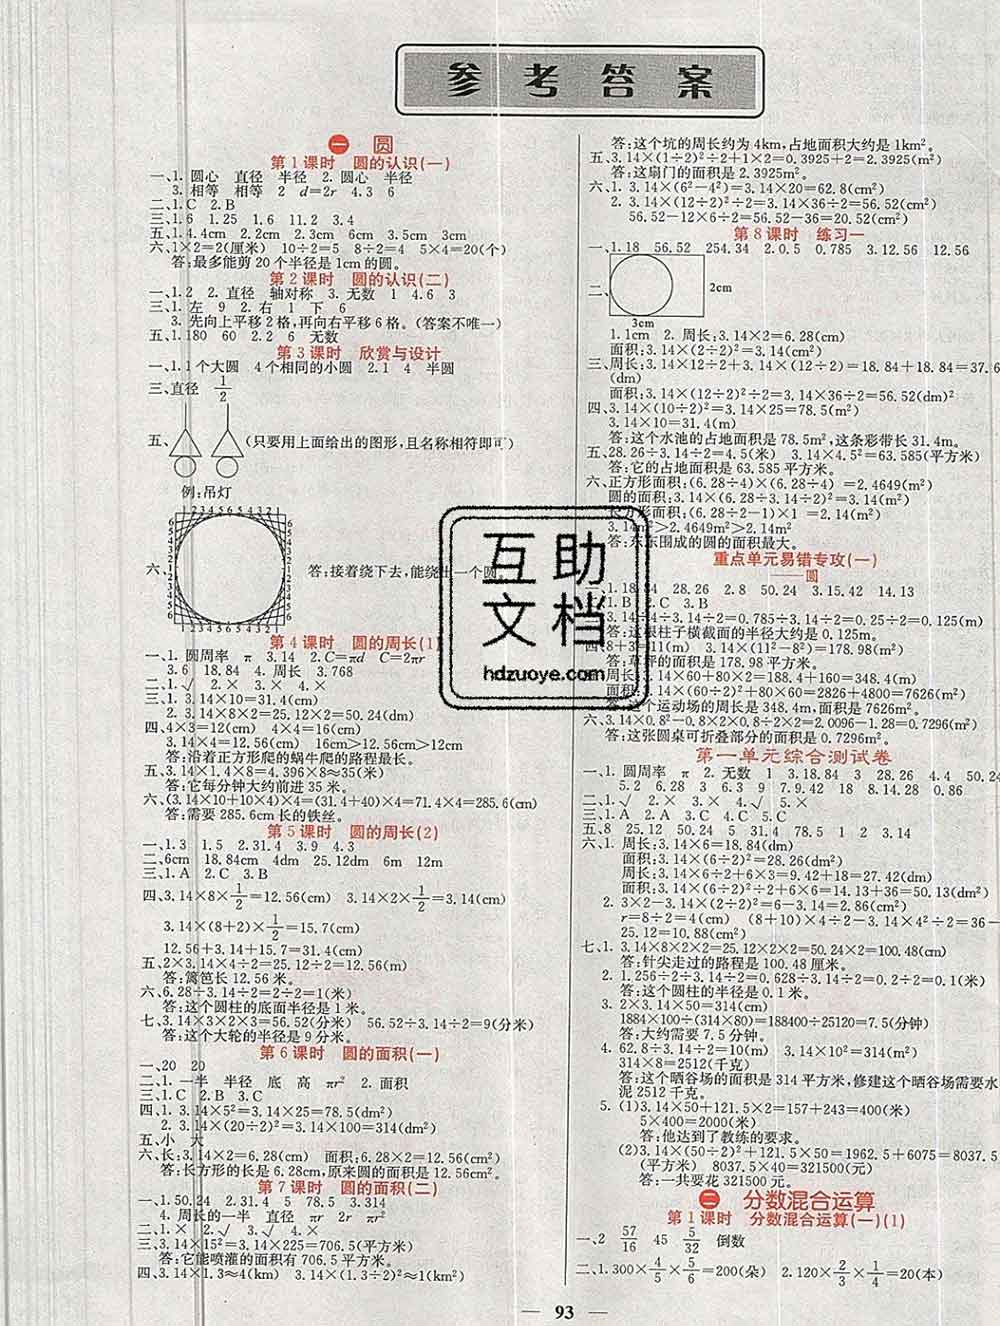 参考答案
一 圆
第1课时 圆的认识(一)
一、1.圆心 直径 半径 2.圆心 半径
3.相等 相等 2 d=2r 4.3 6
二、1.C 2.B
三、1.6 1.25 1.6 11.2 3.4
五、1.4.4cm 2.2cm 2.3cm 6cm 3.5cm 3cm
六、1×2=2(厘米) 10÷2=5 8÷2=4 5×4=20(个)
答:最多能剪20个半径是1cm的圆。
第2课时 圆的认识(二)
一、1.2 2.直径 轴对称 3.无数 1 4.6 3
三、1.左 9 2.右 1 下 6
3.先向上平移2格,再向右平移6格。(答案不唯一)
五、1.180 60 2.2 6 无数
第3课时 欣赏与设计
一、1.1个大圆 4个相同的小圆 2.1 4 半圆
三、直径 1/2
五、(只要用上面给出的图形,且名称相符即可)
例:吊灯
六、答:接着绕下去,能绕出一个圆。
第4课时 圆的周长(1)
一、1.圆周率 π 3.14 2.C=πd C=2πr
3.6 18.84 4.周长 3.768
二、1.√ 2.× 3.× 4.×
三、1.3.14×10=31.4(cm)
2.3.14×8×2=25.12×2=50.24(dm)
四、4×3=12(cm) 4×4=16(cm)
3.14×4=12.56(cm) 16cm>12.56cm>12cm
答:沿着正方形爬的蜗牛爬的路程最长。
五、3.14×1.4×8=4.396×8≈35(米)
答:它每分钟大约前进35米。
六、(3.14×10+10×4)×4=(31.4+40)×4=71.4×4=285.6(cm)
答:需要285.6cm长的铁丝。
第5课时 圆的周长(2)
一、1.3 1.5 2.31.4 3.9 4.3
二、6cm 18.84cm 4dm 25.12dm 6m 12m
三、1.A 2.C 3.B
四、3.14×8×1/2=12.56(cm) 3.14×2×1/2=3.14(cm)
3.14×(8+2)×1/2=15.7(cm)
12.56+3.14+15.7=31.4(cm)
五、2×3.14×4÷2=25.12÷2=12.56(m)
答:篱笆长12.56米。
六、6.28÷3.14÷2=2÷2=1(米)
答:这个圆柱的底面半径是1米。
七、3.14×3×2×3=56.52(分米) 56.52÷3.14÷2=9(分米)
答:这个大轮的半径是9分米。
第6课时 圆的面积(一)
一、20 20
二、1.一半 半径 底 高 πr² 2.面积
三、1.C 2.B 3.C
四、1.3.14×5²=3.14×25=78.5(dm²)
2.3.14×(20÷2)²=3.14×100=314(dm²)
五、小 大
六、长:3.14×2=6.28(cm) 面积:6.28×2=12.56(cm²)
答:长方形的长是6.28cm,原来圆的面积是12.56cm²。
第7课时 圆的面积(二)
一、1.50.24 2.31.4 5 78.5 3.314
4.周长的一半 直径 πr 2r πr²
二、1.× 2.√ 3.√ 4.×
三、3.14×15²=3.14×225=706.5(平方米)
答:它能喷灌的面积有706.5平方米。
四、3.14×1.3≈4(km) 3.14×(1.3÷2)²≈1(km²)
答:这个坑的周长约为4km,占地面积大约是1km²。
五、3.14×(1÷2)²÷2+1×2=0.3925+2=2.3925(m²)
答:这扇门的面积是2.3925m²。
六、1.3.14×(6²-4²)=3.14×20=62.8(cm²)
2.3.14×(12÷2)²÷2=3.14×36÷2=56.52(cm²)
56.52-12×6÷2=56.52-36=20.52(cm²)
第8课时 练习一
一、1.18 56.52 254.34 2.0.5 0.785 3.12.56 12.56
二、
2cm
3cm
1.1cm 2.周长:3.14×2=6.28(cm)
面积:3.14×(2÷2)²=3.14(cm²)
三、周长:3.14×12÷2+3.14×(12÷2)=18.84+18.84=37.6
(dm)
面积:3.14×(12÷2)²÷2=3.14×36÷2=56.52(dm)²
四、3.14×(10÷2)²=3.14×25=78.5(m²)
3.14×10=31.4(m)
答:这个水池的占地面积是78.5m²,这条彩带长31.4m。
五、28.26÷3.14÷2=4.5(米) 3.14×4.5²=63.585(平方米)
答:它的占地面积是63.585平方米。
六、正方形面积:(6.28÷4)×(6.28÷4)=2.4649(m²)
圆的面积:3.14×(6.28÷3.14÷2)²=3.14(m²)
长方形面积:(6.28÷2-1)×1=2.14(m²)
3.14m²>2.4649m²>2.14m²
答:东东围成的圆的面积最大。
重点单元易错专攻(一)
——圆
一、1.18.84 28.26 2.8 50.24 3.15.42 14.13
1.B 2.C 3.B
3.14÷4÷3.14÷2=0.785÷3.14÷2=0.25÷2=0.125(m)
答:这根柱子横截面的半径大约是0.125m。
四、8+3=11(m) 3.14×(11²-8²)=178.98(m²)
答:草坪的面积是178.98平方米。
周长:3.14×60+80×2=188.4+160=348.4(m)
面积:3.14×(60÷2)²+80×60=2826+4800=7626(m²)
答:这个运动场的周长是348.4m,面积是7626m²。
六、3.14×0.8²-0.8×2×0.8÷2×2=2.0096-1.28=0.7296(m²)
答:这张圆桌可折叠部分的面积是0.7296m²。
第一单元综合测试卷
一、1.圆周率 π 2.无数 1 3.18.84 3 28.26 4.4 50.24
5.2 6.28 3 6.3 9 7.9.42 18 8.14.28 0.86
二、1.√ 2.× 3.× 4.√ 5.×
三、1.A 2.A 3.C 4.C 5.C
五、8 25.12 50.24 5 31.4 78.5 1 2 3.14
六、1.周长:3.14×6=18.84(dm)
面积:3.14×(6÷2)²=28.26(dm²)
周长:3.14×6÷2+6×3=9.42+18=27.42(dm)
面积:3.14×(6÷2)²÷2+6×6=14.13+36=50.13(dm²)
2.3×2-3.14×(2÷2)²=6-3.14=2.86(cm²)
r=8÷2=4(cm) (8+10)×4÷2-3.14×4²÷2=36-
25.12=10.88(cm²)
七、1.3.14×8×2×2=25.12×2×2=50.24×2=100.48(cm)
答:针尖走过的路程是100.48厘米。
2.1.256÷2÷3.14÷2=0.628÷3.14÷2=0.2÷2=0.1(米)
答:这个圆柱的半径是0.1米。
3.2×3.14×50=314(cm)
1884×100÷(314×80)=188400÷25120=7.5(分钟)
答:大约需要7.5分钟。
4.62.8÷3.14÷2=10(m) 3.14×10²=314(m²)
314×8=2512(千克)
答:这个晒谷场的面积是314平方米,修建这个晒谷场需要水
泥2512千克。
5.(1)3.14×50+121.5×2=157+243=400(米)
5×400=2000(米)
答:他达到了教练的要求。
(2)3.14×(50÷2)²+121.5×50=1962.5+6075=8037.5
(平方米) 8037.5×40=321500(元)
答:一共要花321500元。
二 分数混合运算
第1课时 分数混合运算(一)(1)
一、2 57/16 45 5/32 倒数
二、1.300×4/5×5/6=200(朵) 2.120×2/3×1/4=20(本)
— 93 —
互助
文档
hdzuoye.com